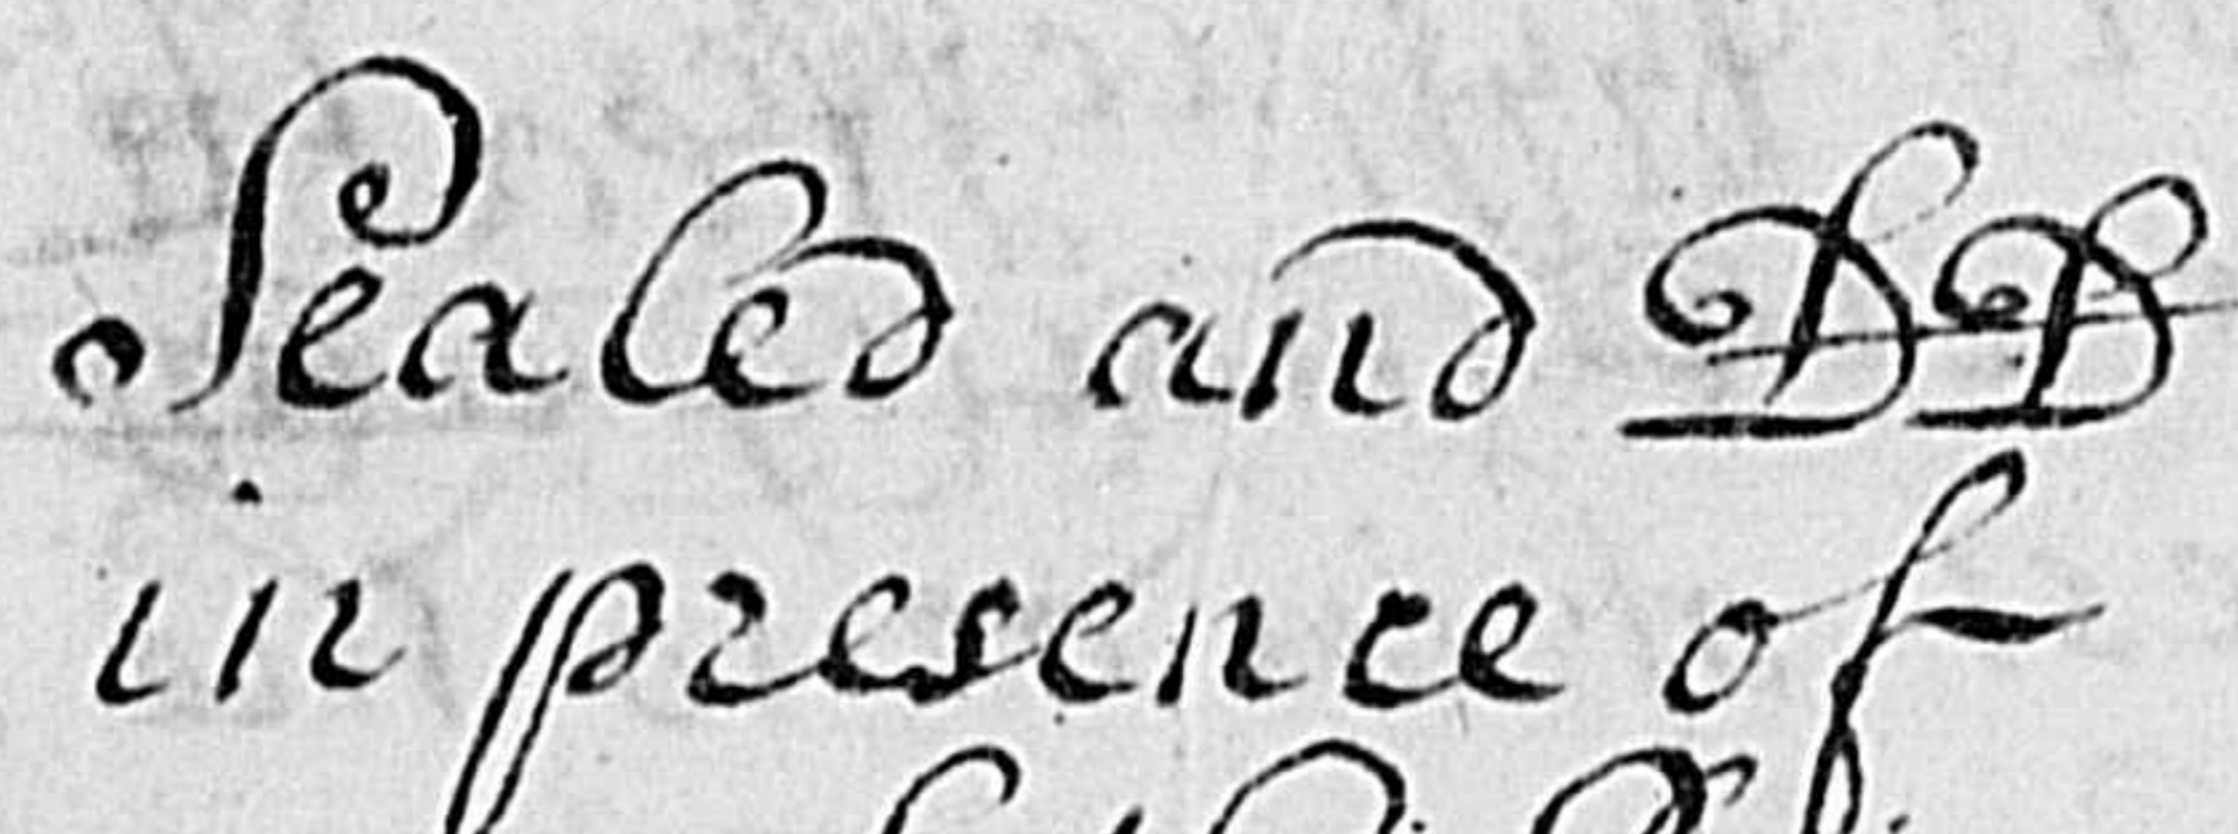 Sealed and DD
in presence of